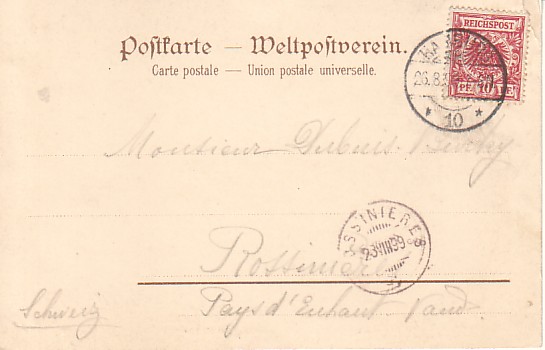 Postkarte — Weltpostverein.
Carte postale — Union postale universelle.
REICHSPOST
10 PF 10
26.8
* 10 *
Monsieur Dubuis
SSINIERES
VIII 99
Rossinière
Schweiz
Pays d'Enhaut Vaud